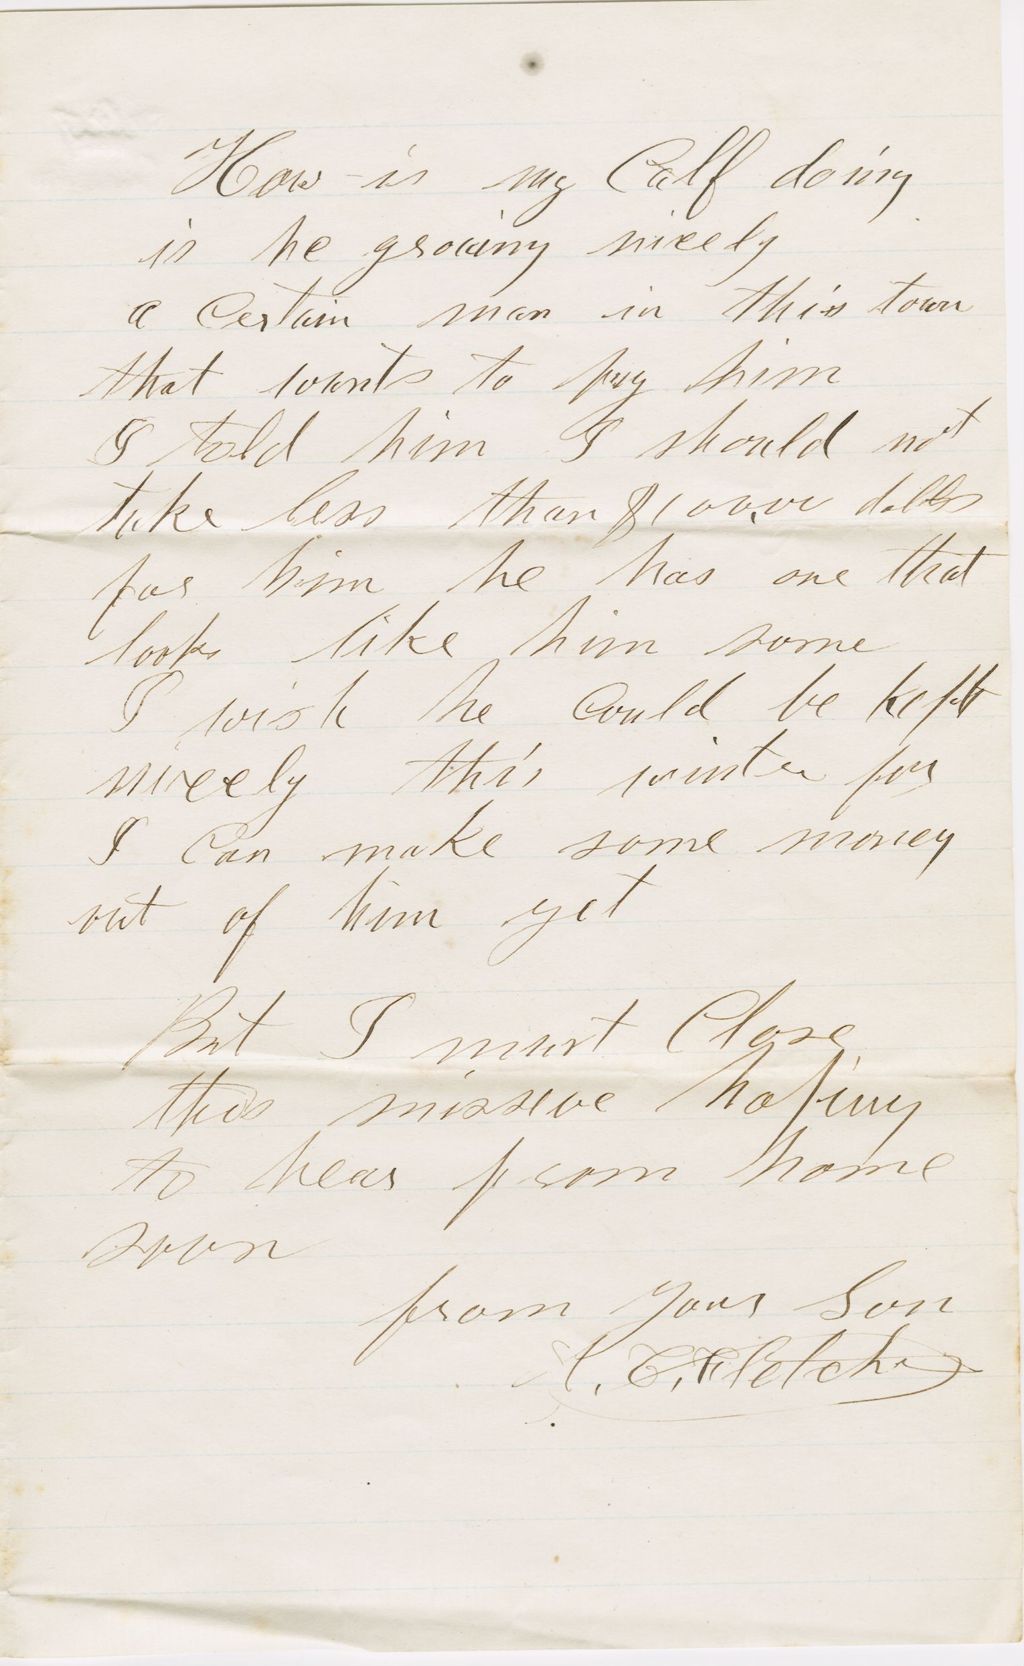 How is my Calf doing
is he growing nicely
a Certain man in this town
that wants to him
I told him I should not
take less than $100.00 dolls
for him he has one that
looks like him some
I wish he Could be kept
nicely this winter for
I Can make some money
out of him yet
But I must Close
this missive hoping
to hear from home
soon
from your Son
C. Fletcher